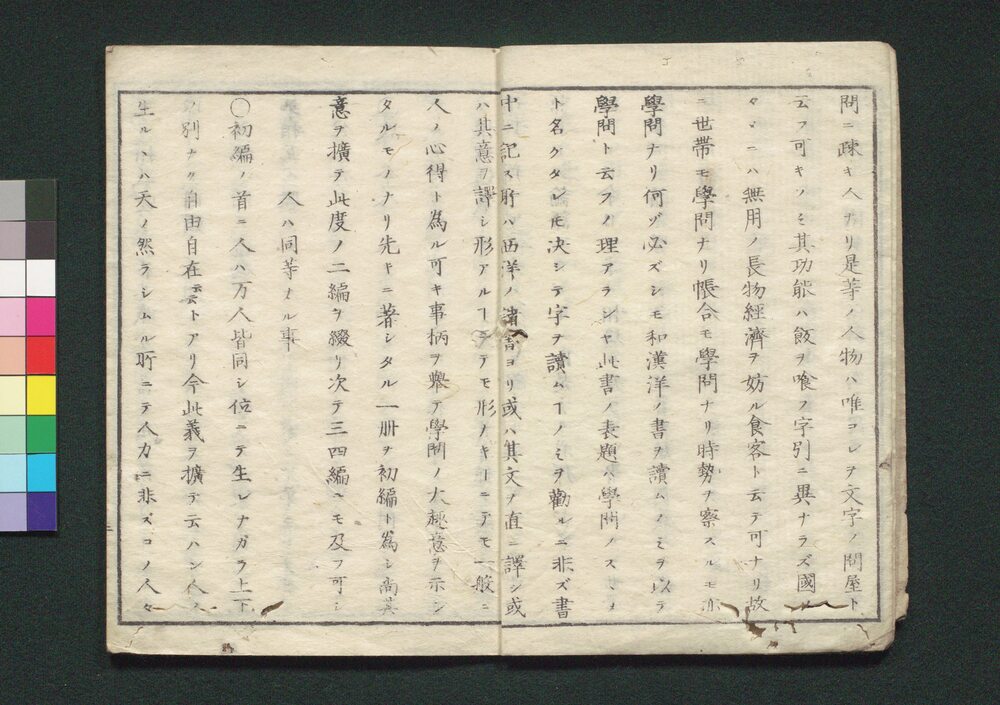 問ニ疎キ人ナリ是等ノ人物ハ唯コレヲ文字ノ問屋ト
云フ可キノミ其功能ハ飯ヲ喰フ字引ニ異ナラズ國ノ
タメニハ無用ノ長物經濟ヲ妨ル食客ト云テ可ナリ故
ニ世帯モ學問ナリ帳合モ學問ナリ時勢ヲ察スルモ亦
學問ナリ何ゾ必ズシモ和漢洋ノ書ヲ讀ムノミヲ以テ
學問ト云フノ理アランヤ此書ノ表題ハ學問ノスヽメ
ト名ケタレ𪜈决シテ字ヲ讀ムヿノミヲ勸ルニ非ズ書
中ニ記ス所ハ西洋ノ諸書ヨリ或ハ其文ヲ直ニ譯シ或
ハ其意ヲ譯シ形アルヿニテモ形ノキヿニテモ一般ニ
人ノ心得ト為ル可キ事柄ヲ擧テ學問ノ大趣意ヲ示シ
タルモノナリ先キニ著シタル一册ヲ初編ト為シ尚其
意ヲ擴テ此度ノ二編ヲ綴リ次テ三四編ニモ及フ可シ
人ハ同等ナル事
〇初編ノ首ニ人ハ万人皆同シ位ニテ生レナガラ上下
ノ別ナク自由自在云云トアリ今此義ヲ擴テ云ハン人ノ
生ルヽハ天ノ然ラシムル所ニテ人力ニ非ズコノ人々